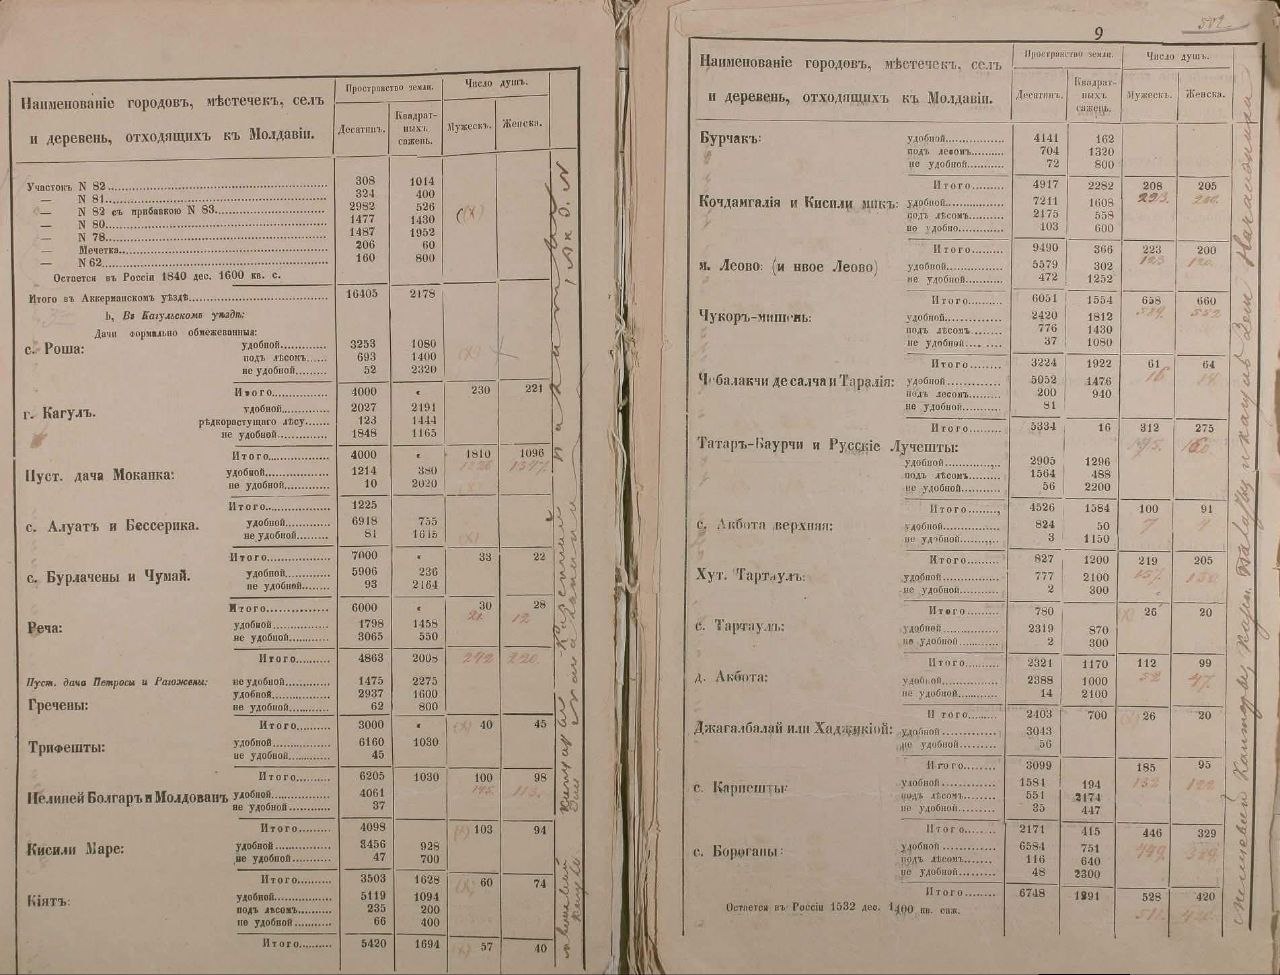 Наименованіе городовъ, мѣстечекъ, селъ
и деревень, отходящихъ къ Молдавіи.
Пространство земли.
Число душъ.
Десятинъ.
Квадрат-
ныхъ
сажень.
Мужескъ.
Женска.
Участокъ N 82 308 1014
— N 81 324 400
— N 82 съ прибавкою N 83 2982 526
— N 80 1477 1430
— N 78 1487 1952
— Мечетка 206 60
— N 62 160 800
Остается въ Россіи 1840 дес. 1600 кв. с.
Итого въ Аккерманскомъ уѣздѣ 16405 2178
b, Въ Кагульскомъ уѣздѣ:
Дачи формально обмежеванныя:
с. Роша: удобной 3253 1080
подъ лѣсомъ 693 1400
не удобной 52 2320
Итого 4000 « 230 221
г. Кагулъ. удобной 2027 2191
рѣдкорастущаго лѣсу 123 1444
не удобной 1848 1165
Итого 4000 « 1810 1096
Пуст. дача Моканка: удобной 1214 380
не удобной 10 2020
Итого 1225
с. Алуатъ и Бессерика. удобной 6918 755
не удобной 81 1645
Итого 7000 « 33 22
с. Бурлачены и Чумай. удобной 5906 236
не удобной 93 2164
Итого 6000 « 30 28
Реча: удобной 1798 1458
не удобной 3065 550
Итого 4863 2008 242 220
Пуст. дача Петросы и Рагожены: не удобной 1475 2275
Гречены: удобной 2937 1600
не удобной 62 800
Итого 3000 « 40 45
Трифешты: удобной 6160 1030
не удобной 45
Итого 6205 1030 100 98
Пелиней Болгаръ и Молдованъ удобной 4061
не удобной 37
Итого 4098 103 94
Кисили Маре: удобной 3456 928
не удобной 47 700
Итого 3503 1628 60 74
Кіятъ: удобной 5119 1094
подъ лѣсомъ 235 200
не удобной 66 400
Итого 5420 1694 57 40
9
Наименованіе городовъ, мѣстечекъ, селъ
и деревень, отходящихъ къ Молдавіи.
Пространство земли.
Число душъ.
Десятинъ.
Квадрат-
ныхъ
сажень.
Мужескъ.
Женска.
Бурчакъ: удобной 4141 162
подъ лѣсомъ 704 1320
не удобной 72 800
Итого 4917 2282 208 205
Кочдамгалія и Кисили микъ: удобной 7211 1608
подъ лѣсомъ 2175 558
не удобно 103 600
Итого 9490 366 223 200
м. Леово: (и нвое Леово) удобной 5579 302
не удобной 472 1252
Итого 6051 1554 658 660
Чукоръ-мишень: удобной 2420 1812
подъ лѣсомъ 776 1430
не удобной 37 1080
Итого 3224 1922 61 64
Чебалакчи де салча и Таралія: удобной 5052 1476
подъ лесомъ 200 940
не удобной 81
Итого 5334 16 312 275
Татаръ-Баурчи и Русскіе Лучешты:
удобной 2905 1296
подъ лѣсомъ 1564 488
не удобной 56 2200
Итого 4526 1584 100 91
с. Акбота верхняя: удобной 824 50
не удобной 3 1150
Итого 827 1200 219 205
Хут. Тартаулъ: удобной 777 2100
не удобной 2 300
Итого 780 26 20
с. Тартаулъ: удобной 2319 870
не удобной 2 300
Итого 2321 1170 112 99
д. Акбота: удобной 2388 1000
не удобной 14 2100
Итого 2403 700 26 20
Джагалбалай или Хаджикіой: удобной 3043
не удобной 56
Итого 3099 185 95
с. Карпешты: удобной 1584 194
подъ лѣсомъ 551 2174
не удобной 35 447
Итого 2171 415 446 329
с. Бороганы: удобной 6584 751
подъ лѣсомъ 116 640
не удобной 48 2300
Итого 6748 1291 528 420
Остается въ Россіи 1532 дес. 1400 кв. саж.